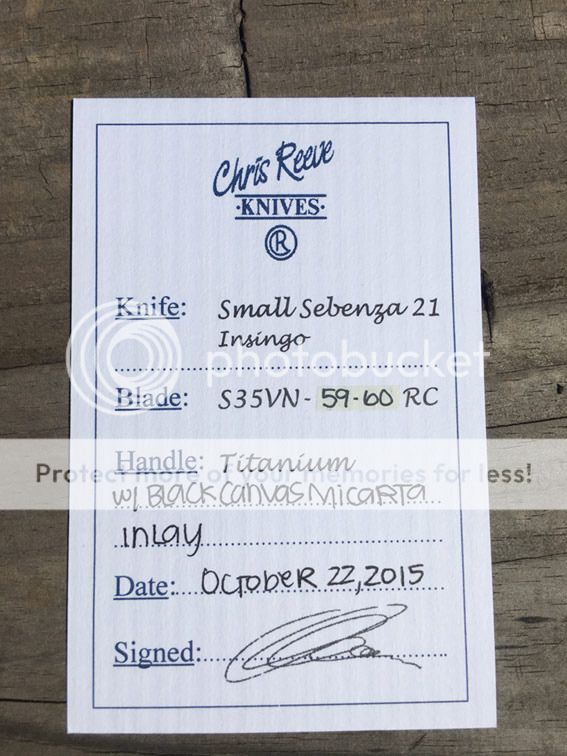 Chris Reeve
·KNIVES·
R
Knife: Small Sebenza 21
Insingo
photobucket
Blade: S35VN - 59-60 RC
Protect more of your memories for less!
Handle: Titanium
w/ Black Canvas Micarta
inlay
Date: October 22, 2015
Signed: